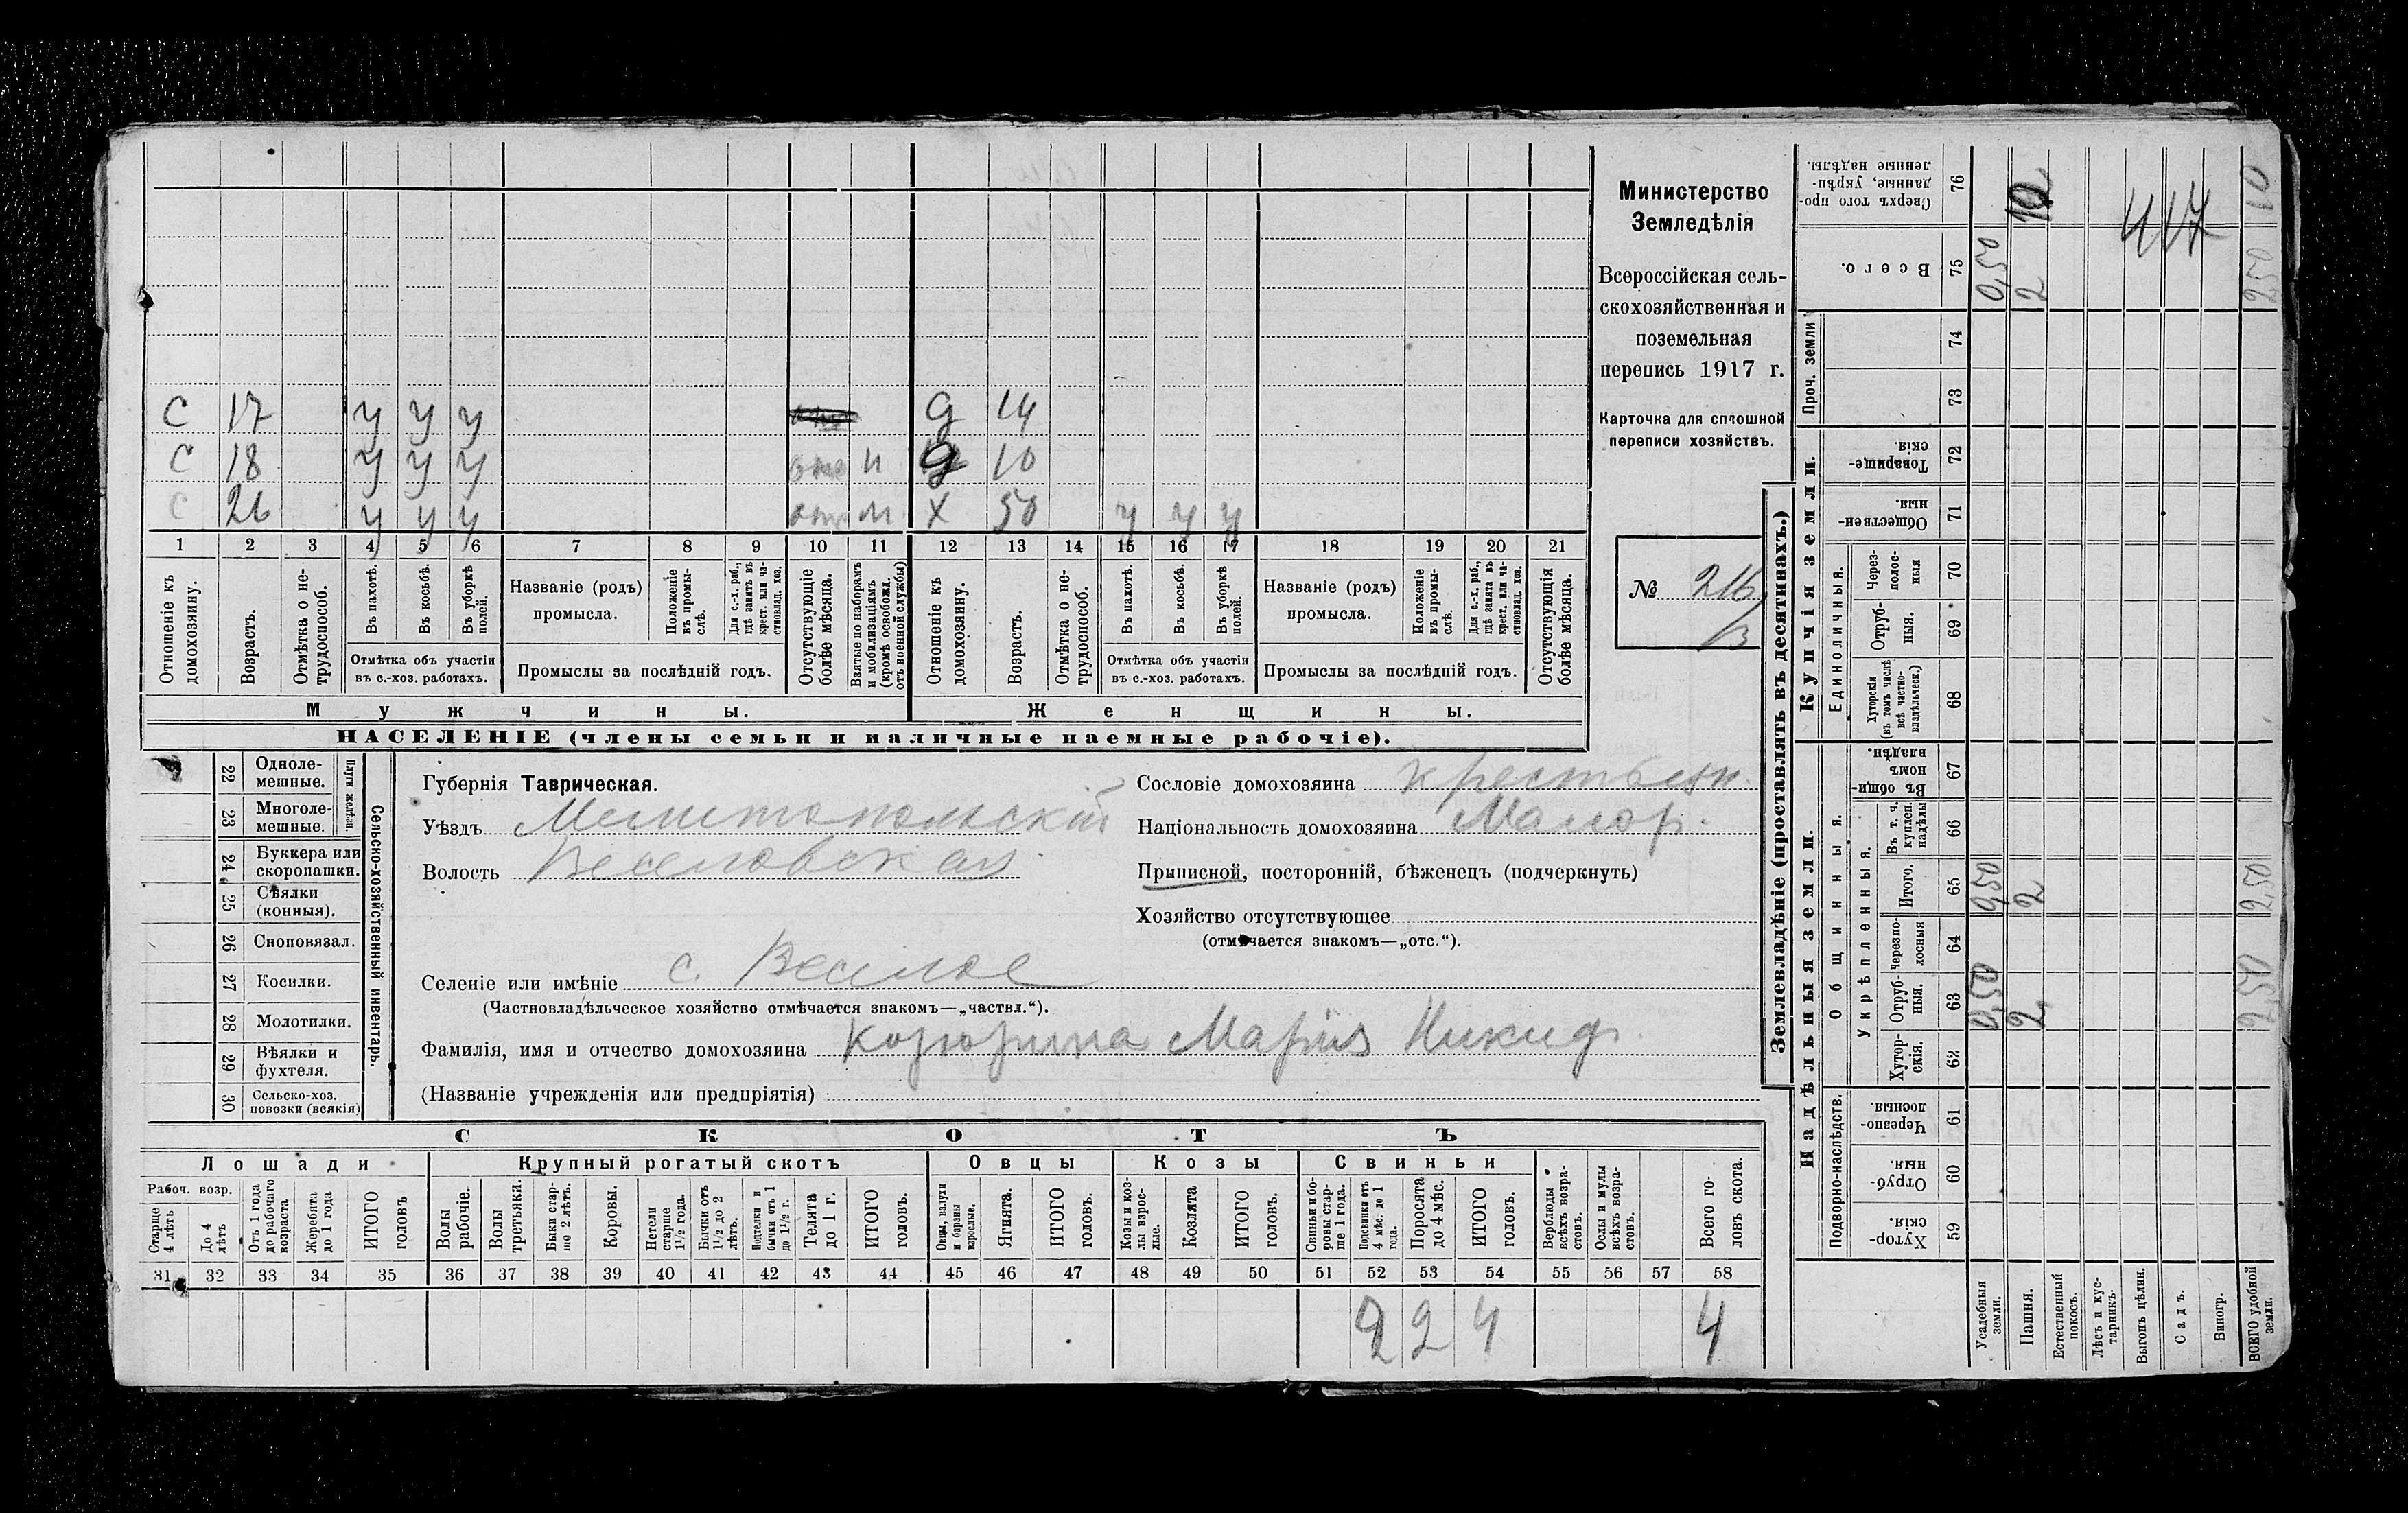 С 17 у у у Д 14
С 18 у у у отс н Д 10
С 26 у у у отс м Х 50 у у у
1 2 3 4 5 6 7 8 9 10 11 12 13 14 15 16 17 18 19 20 21
Отношеніе къ домохозяину.
Возрастъ.
Отмѣтка о нетрудоспособ.
Въ пахотѣ.
Въ косьбѣ.
Въ уборкѣ полей.
Отмѣтка объ участіи
въ с.-хоз. работахъ.
Названіе (родъ)
промысла.
Положеніе въ промыслѣ.
Для с.-х. раб., гдѣ занятъ въ крест. или частновлад. хоз.
Промыслы за послѣдній годъ.
Отсутствующіе болѣе мѣсяца.
Взятые по наборамъ и мобилизаціямъ (кромѣ освобожд. отъ военной службы)
Отношеніе къ домохозяину.
Возрастъ.
Отмѣтка о нетрудоспособ.
Въ пахотѣ.
Въ косьбѣ.
Въ уборкѣ полей.
Отмѣтка объ участіи
въ с.-хоз. работахъ.
Названіе (родъ)
промысла.
Положеніе въ промыслѣ.
Для с.-х. раб., гдѣ занята въ крест. или частновлад. хоз.
Промыслы за послѣдній годъ.
Отсутствующія болѣе мѣсяца.
Мужчины. Женщины.
НАСЕЛЕНІЕ (члены семьи и наличные наемные рабочіе).
Министерство
Земледѣлія
Всероссійская сель-
скохозяйственная и
поземельная
перепись 1917 г.
Карточка для сплошной
переписи хозяйствъ.
№ 216
В
22 Одноле-
мешные.
23 Многоле-
мешные.
Плуги желѣзн.
24 Буккера или
скоропашки.
25 Сѣялки
(конныя).
26 Сноповязал.
27 Косилки.
28 Молотилки.
29 Вѣялки и
фухтеля.
30 Сельско-хоз.
повозки (всякія)
Сельско-хозяйственный инвентарь.
Губернія Таврическая.
Уѣздъ Мелитопольскій
Волость Веселовская
Селеніе или имѣніе с. Веселое
(Частновладѣльческое хозяйство отмѣчается знакомъ—„частвл.“).
Фамилія, имя и отчество домохозяина Мария Никиф
(Названіе учрежденія или предпріятія)
Сословіе домохозяина крестьян.
Національность домохозяина Малор.
Приписной, посторонній, бѣженецъ (подчеркнуть)
Хозяйство отсутствующее
(отмѣчается знакомъ—„отс.“).
СКОТЪ
Лошади Крупный рогатый скотъ Овцы Козы Свиньи
Рабоч. возр.
Старше 4 лѣтъ
До 4 лѣтъ
Отъ 1 года до рабочаго возраста
Жеребята до 1 года
ИТОГО головъ
Волы рабочіе.
Волы третьяки.
Быки старше 2 лѣтъ.
Коровы.
Нетели старше 1½ года.
Бычки отъ 1½ до 2 лѣтъ.
Подтелки и бычки отъ 1 до 1½ г.
Телята до 1 г.
ИТОГО головъ.
Овцы, валухи и бараны взрослые.
Ягнята.
ИТОГО головъ.
Козы и козлы взрослые.
Козлята
ИТОГО головъ.
Свиньи и боровы старше 1 года.
Подсвинки отъ 4 мѣс. до 1 года.
Поросята до 4 мѣс.
ИТОГО головъ.
Верблюды всѣхъ возрастовъ.
Ослы и мулы всѣхъ возрастовъ.
Всего головъ скота.
31 32 33 34 35 36 37 38 39 40 41 42 43 44 45 46 47 48 49 50 51 52 53 54 55 56 57 58
2 2 4 4
Землевладѣніе (проставлять въ десятинахъ.)
Надѣльныя земли. Купчія земли.
Подворно-наслѣдств.
Общинныя.
Укрѣпленныя.
Единоличныя.
Проч. земли
Хуторскія. 59
Отрубныя 60
Черезполосныя. 61
Хуторскія. 62
Отрубныя. 63
Черезполосныя 64
Итого. 65
Въ т. ч. куплен. надѣлы 66
Въ общинномъ владѣн. 67
Хуторскія (въ томъ числѣ всѣ частновладѣльческ.) 68
Отрубныя. 69
Черезполосныя 70
Общественныя. 71
Товарищескія. 72
73
74
Всего. 75
Сверхъ того проданные, укрѣпленные надѣлы. 76
Усадебныя земли. 0,50 0,50 0,50
Пашня. 2 2 2 10
Естественный покосъ.
Лѣсъ и кустарникъ.
Выгонъ цѣлин.
Садъ.
Виногр.
ВСЕГО удобной земли. 2,50 2,50 2,50 10
417